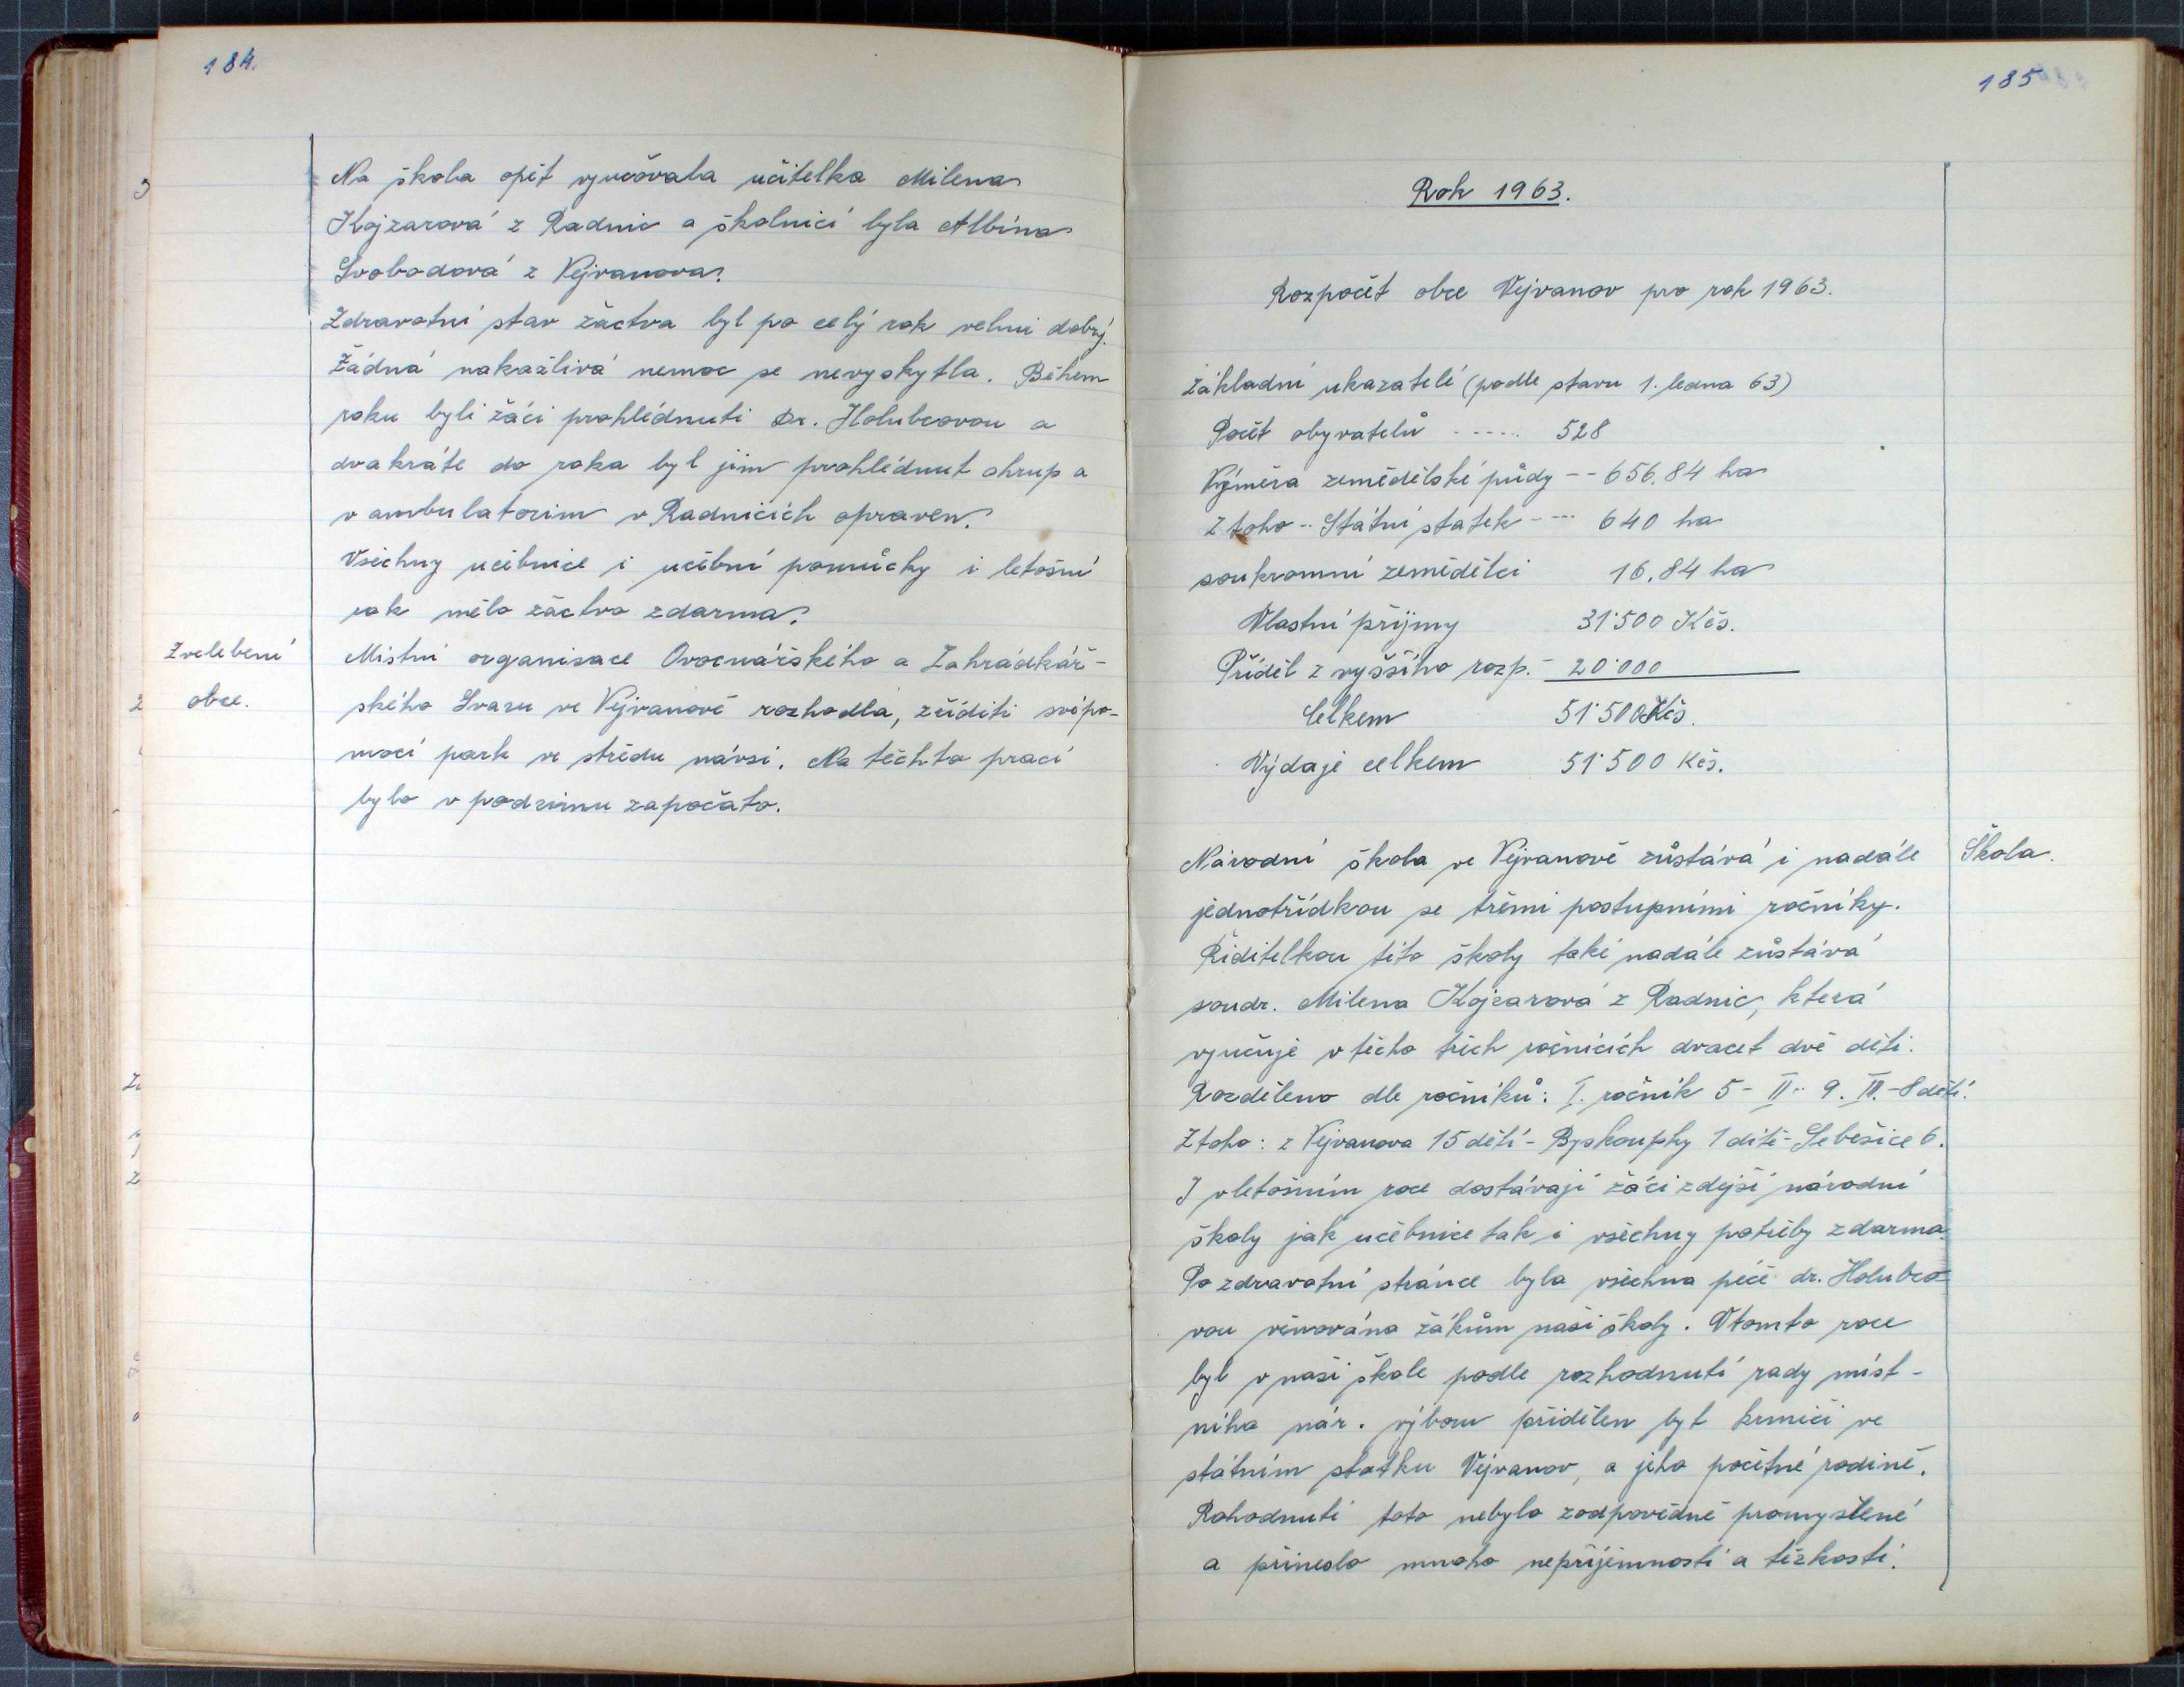 184.
Na škola opět vyučovala učitelka Milena
Kojzarová z Radnic a školnicí byla Albína
Svobodová z Vejvanova.
Zdravotní stav žáctva byl po celý rok velmi dobrý.
Žádná nakažlivá nemoc se nevyskytla. Během
roku byli žáci prohlédnuti Dr. Holubcovou a
dvakráte do roka byl jim prohlédnut chrup a
v ambulatorim v Radnicích opraven.
Všechny učebnice i učební pomůcky i letošní
rok mělo žáctvo zdarma.
Zvelebení
obce.
Místní organisace Ovocnářského a Zahrádkář-
ského Svazu ve Vejvanově rozhodla, zříditi svépo-
mocí park ve středu návsi. Na těchto prací
bylo v podzimu započato.
185
Rok 1963.
Rozpočet obce Vejvanov pro rok 1963.
Základní ukazatelé (podle stavu 1. ledna 63)
Počet obyvatelů ----- 528
Výměra zemědělské půdy -- 656.84 ha
Z toho -- Státní statek ---- 640 ha
soukromní zemědělci 16.84 ha
Vlastní příjmy 31˙500 Kčs.
Příděl z vyššího rozp. - 20˙000
Celkem 51˙500 Kčs.
Výdaje celkem 51˙500 Kčs.
Škola.
Národní škola ve Vejvanově zůstává i nadále
jednotřídkou se třemi postupními ročníky.
Ředitelkou této školy také nadále zůstává
soudr. Milena Kojzarová z Radnic, která
vyučuje v těcho třech ročnících dvacet dvě děti.
Rozděleno dle ročníků: I. ročník 5 - II - 9. III. - 8 dětí.
Z toho: z Vejvanova 15 dětí - Byskoupky 1 dítě - Sebešice 6.
I v letošním roce dostávají žáci zdejší národní
školy jak učebnice tak i všechny potřeby zdarma
Po zdravotní stránce byla všechna péče dr. Holubco
vou věnována žákům naší školy. V tomto roce
byl v naší škole podle rozhodnutí rady míst-
ního nár. výboru přidělen byt krmiči ve
státním statku Vejvanov, a jeho početné rodině.
Rohodnutí toto nebylo zodpovědně promyšlené
a přineslo mnoho nepříjemností a těžkostí.